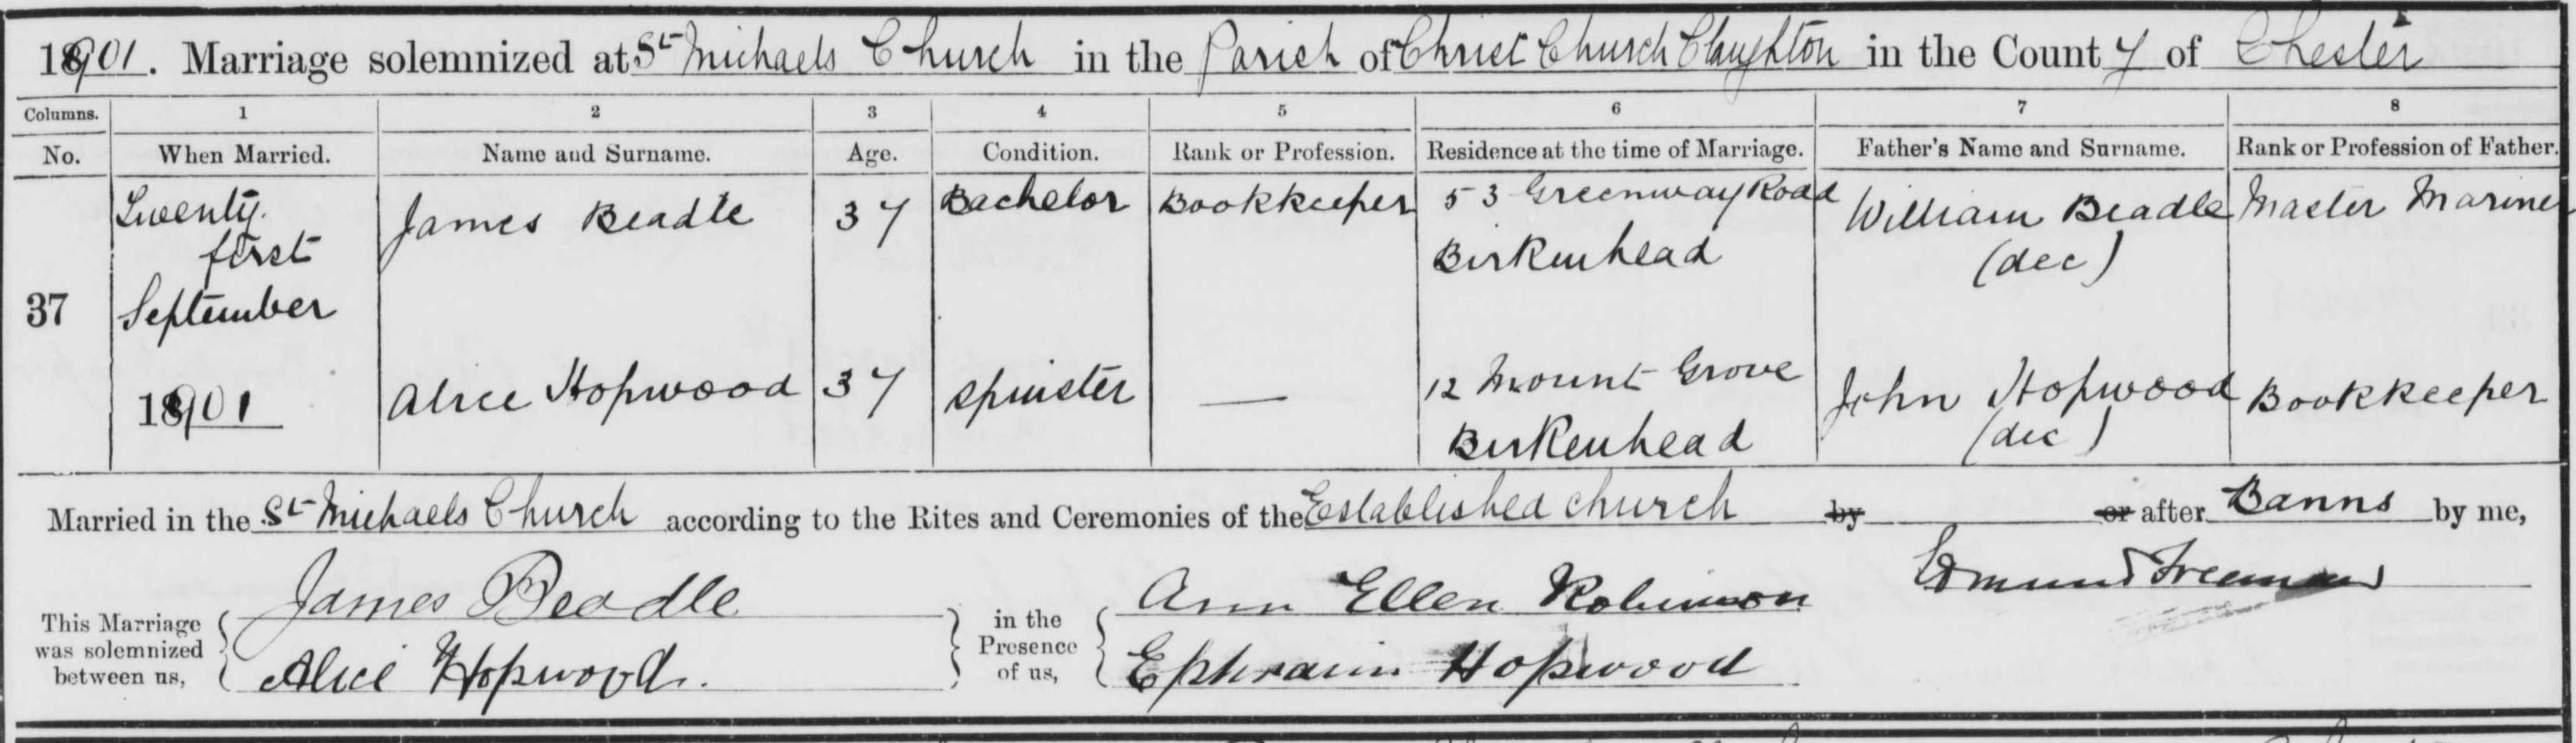 1901. Marriage solemnized at St Michaels Church in the Parish of Christ Church Claughton in the County of Chester
Columns. 1 2 3 4 5 6 7 8
No. When Married. Name and Surname. Age. Condition. Rank or Profession. Residence at the time of Marriage. Father's Name and Surname. Rank or Profession of Father.
37
Twenty
first
September
1901
James Beadle 37 Bachelor Bookkeeper 53 Greenway Road
Birkenhead
William Beadle
(dec)
Master Mariner
Alice Hopwood 37 Spinster — 12 Mount Grove
Birkenhead
John Hopwood
(dec)
Bookkeeper
Married in the St Michaels Church according to the Rites and Ceremonies of the Established church by or after Banns by me,
Edmund Freeman
This Marriage
was solemnized
between us,
James Beadle
Alice Hopwood.
in the
Presence
of us,
Ann Ellen Robinson
Ephraim Hopwood